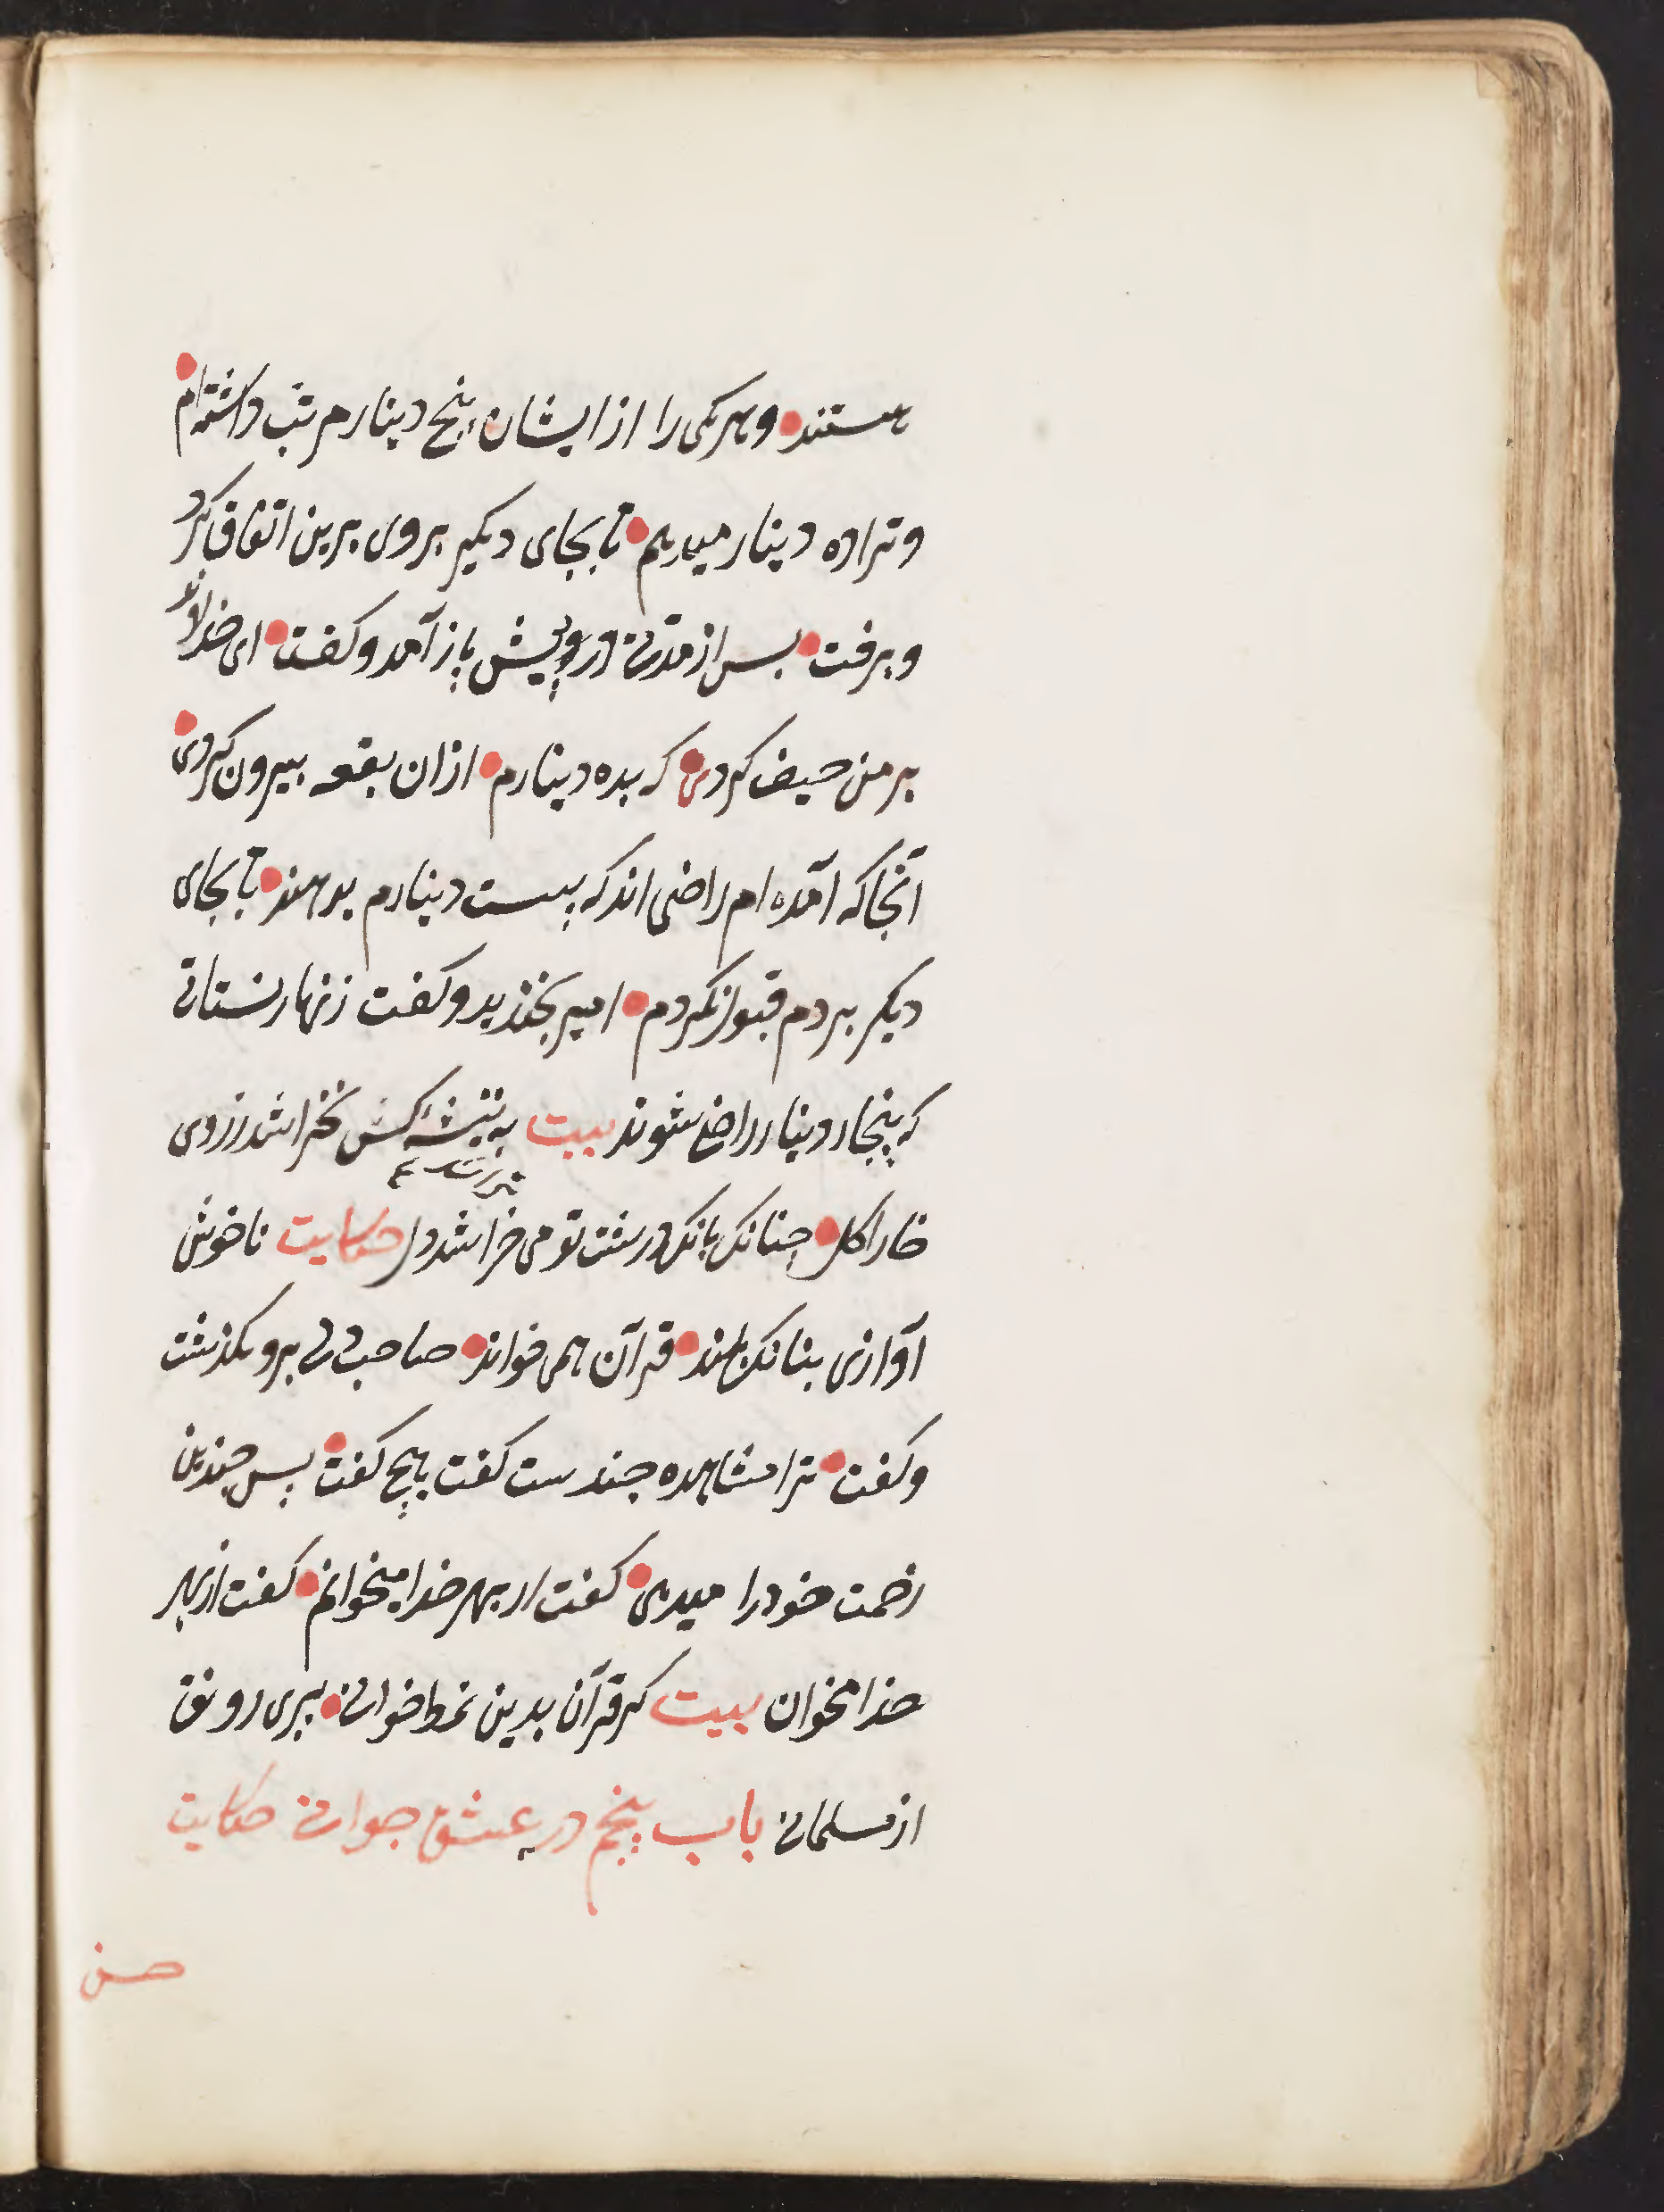 هستند وهر یکی را از ایشان پنج دینار مرتب داشته‌ام
و ترا ده دینار میدهم تا بجای دیگر بروی برین اتفاق کرد
و برفت بس از مدتی درویش باز آمد و گفت ای خداوند
بر من حیف کردی که بده دینارم از ان بقعه بیرون کردی
آنجا که آمده ام راضی اند که بیست دینارم بدهند تا بجای
دیگر بردم قبول نکردم امیر بخندید و گفت زنهار نستانی
که پنجاه دینار راضی شوند بیت به تیشه کس نخراشد ز روی
خارا گل چنانک بانک درشت تو می خراشد دل حکایت ناخوش
آوازی ببانک بلند قرآن همی خواند صاحب دلی برو بگذشت
و گفت ترا مشاهره چندست گفت هیچ گفت پس چندین
زحمت خود را میدهی گفت از بهر خدا میخوانم گفت از بهر
خدا مخوان بیت گر قرآن بدین نمط خوانی ببری رونق
از مسلمانی باب پنجم در عشق جوانی حکایت
حسن